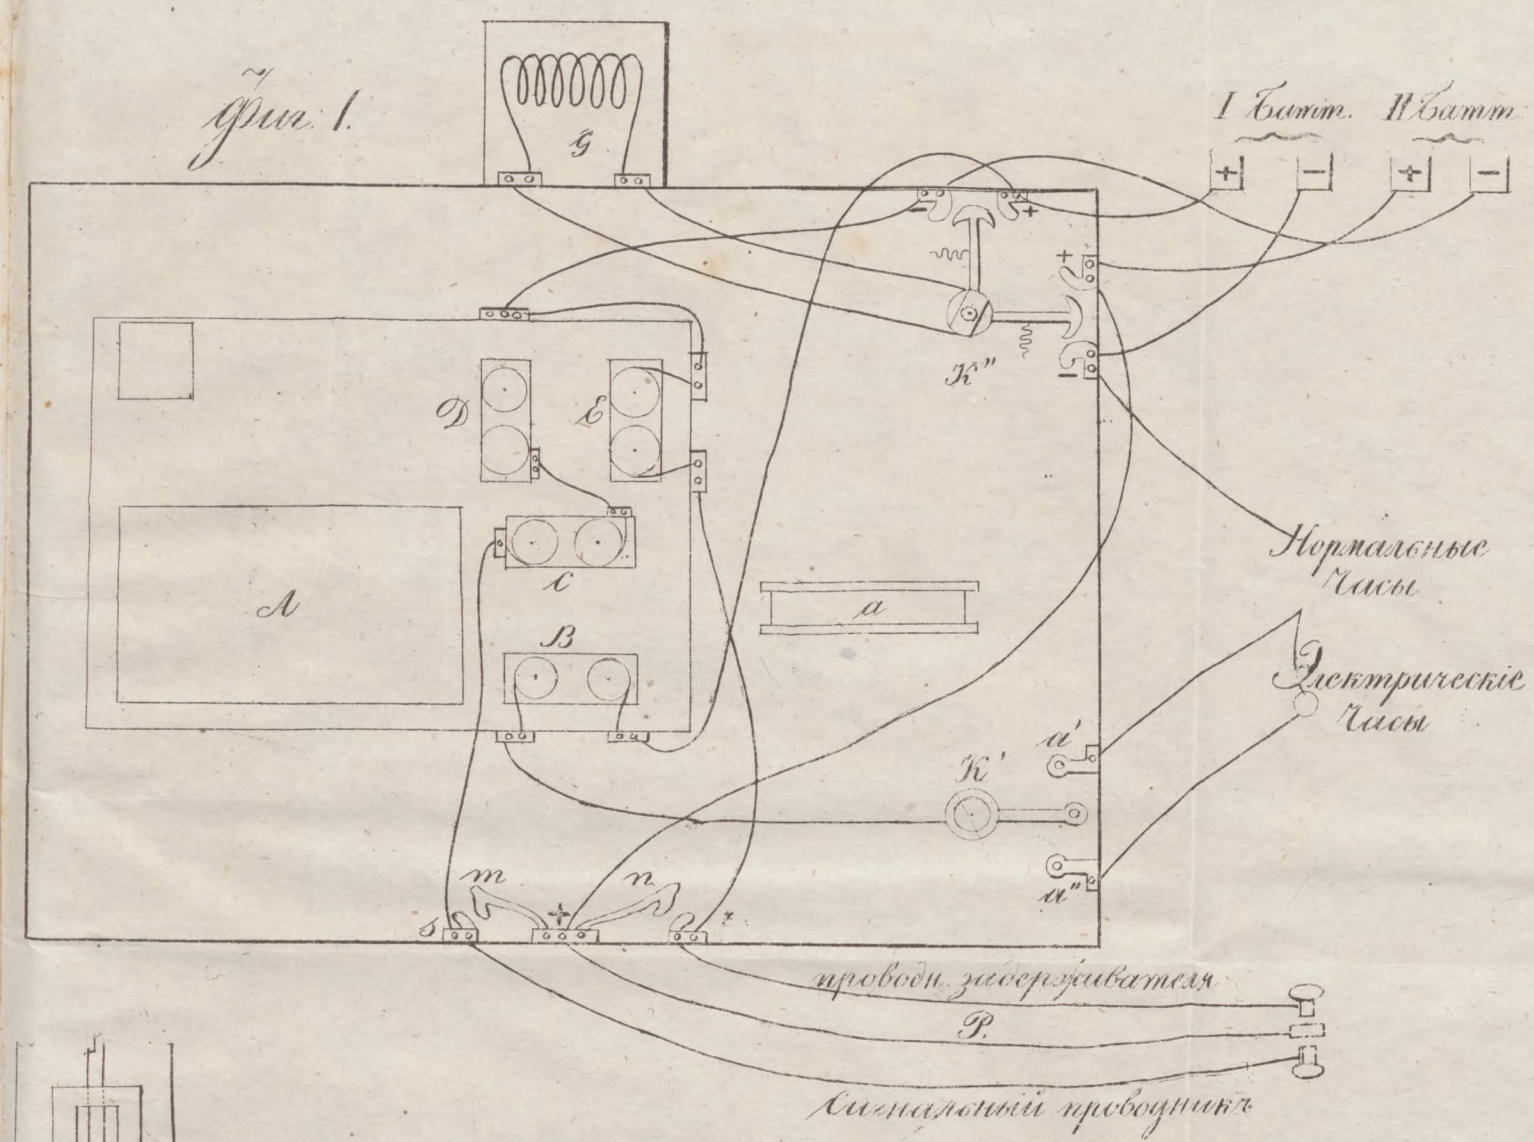 Фиг. 1.
G
I Батт. II Батт.
+ − + −
− +
+
K"
−
D E
C
A
a
B
Нормальные
Часы
Электрическiе
Часы
a'
K'
a"
m n
+
s r
проводн. задерживателя
P.
Сигнальный проводникъ